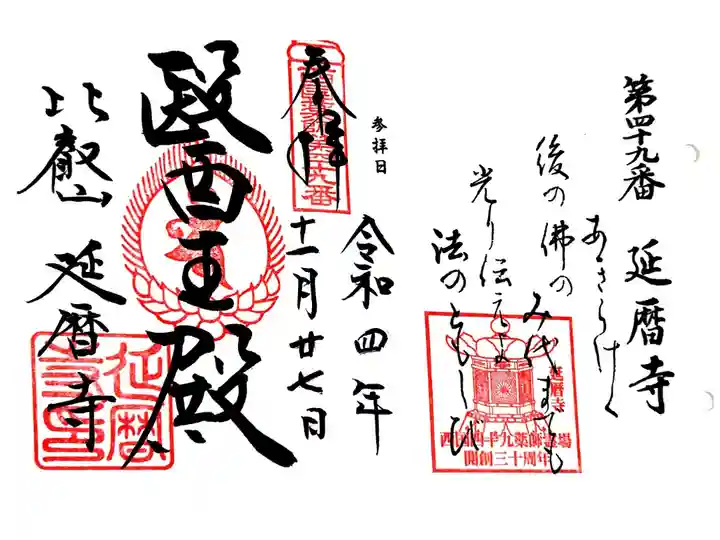 第四十九番 延暦寺
あきらけく
後の佛の み代までも
光り伝えよ
法のともしび
延暦寺
西国四十九薬師霊場
開創三十周年
参拝日
令和四年
十一月廿七日
奉拝
醫王殿
比叡山 延暦寺